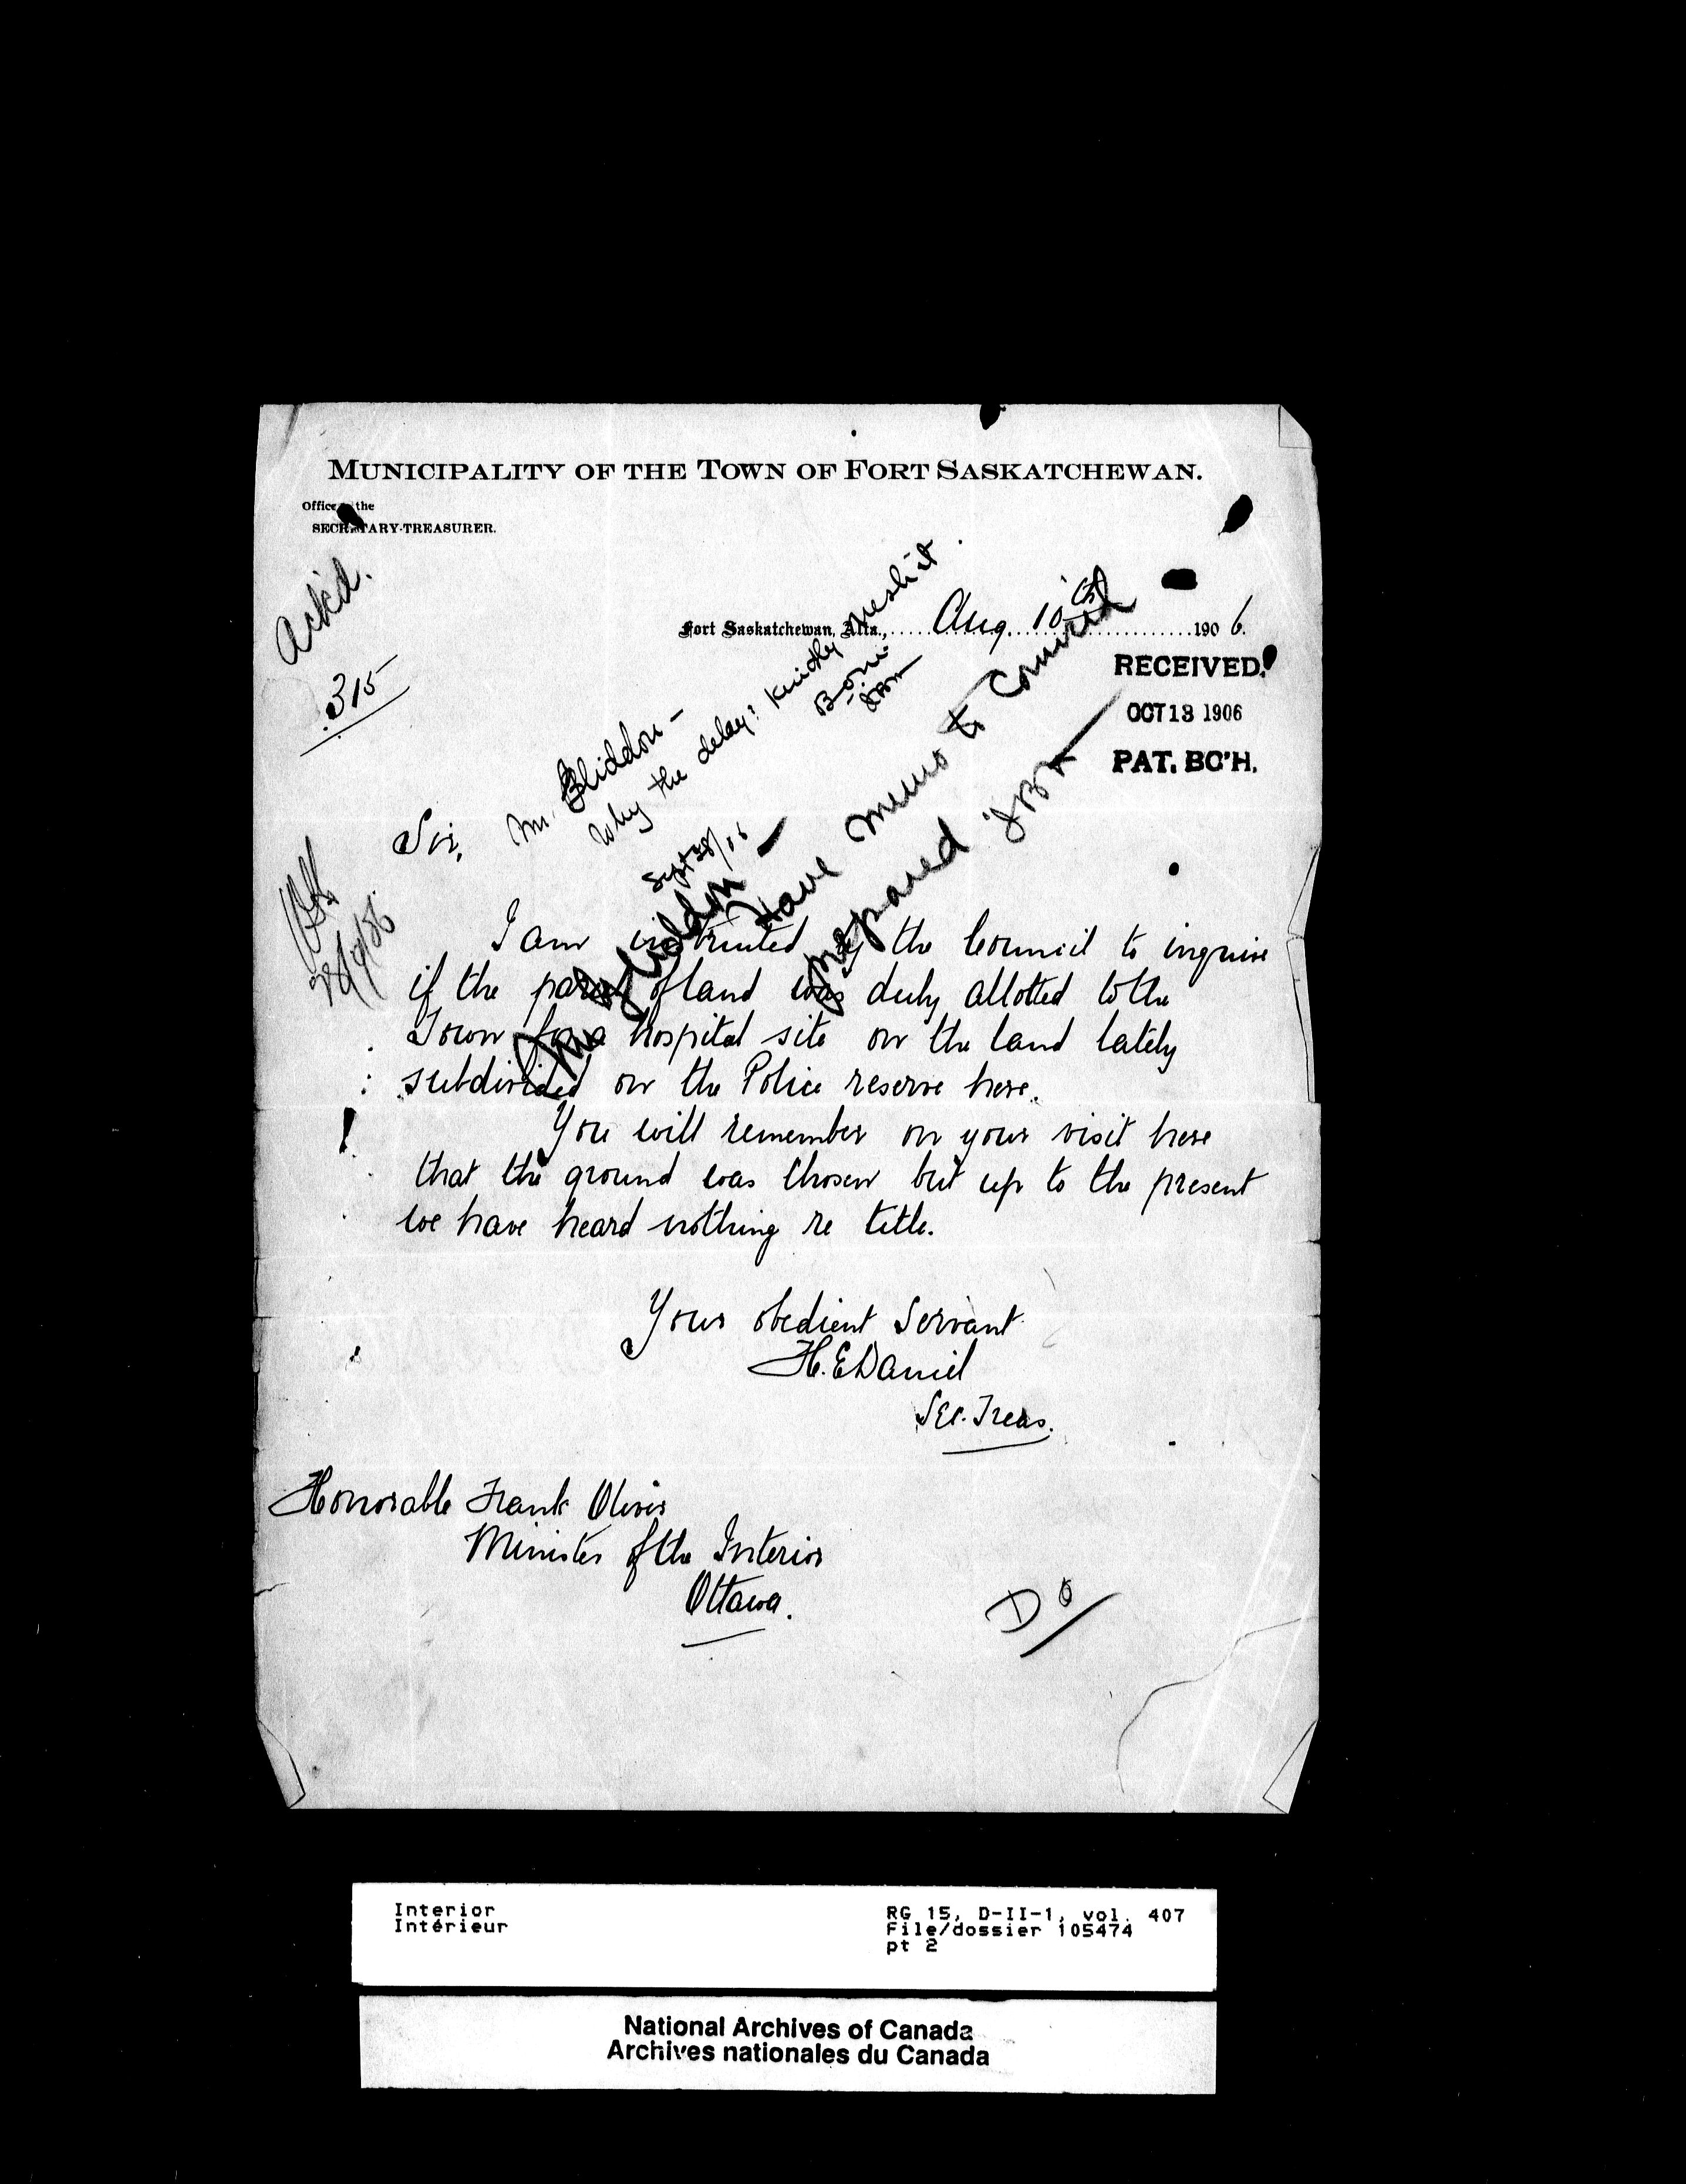 MUNICIPALITY OF THE TOWN OF FORT SASKATCHEWAN.
Office the
SECRETARY-TREASURER.
Ack'd.
315
Fort Saskatchewan, Alta., Aug. 10th 1906.
RECEIVED.
OCT 13 1906
PAT. BC'H.
Mr. Gliddon –
Why the delay? Kindly
Sept 28/06
Mr Gliddon –
Have memo to Council
prepared
Sir,
I am instructed by the Council to inquire
if the parcel of land was duly allotted to the
Town for a hospital site on the land lately
subdivided on the Police reserve here.
You will remember on your visit here
that the ground was chosen but up to the present
we have heard nothing re title.
Your obedient Servant
H. E Daniel
Sec. Treas.
Honorable Frank Oliver
Minister of the Interior
Ottawa.
Interior
Intérieur
RG 15, D-II-1, vol. 407
File/dossier 105474
pt 2
National Archives of Canada
Archives nationales du Canada